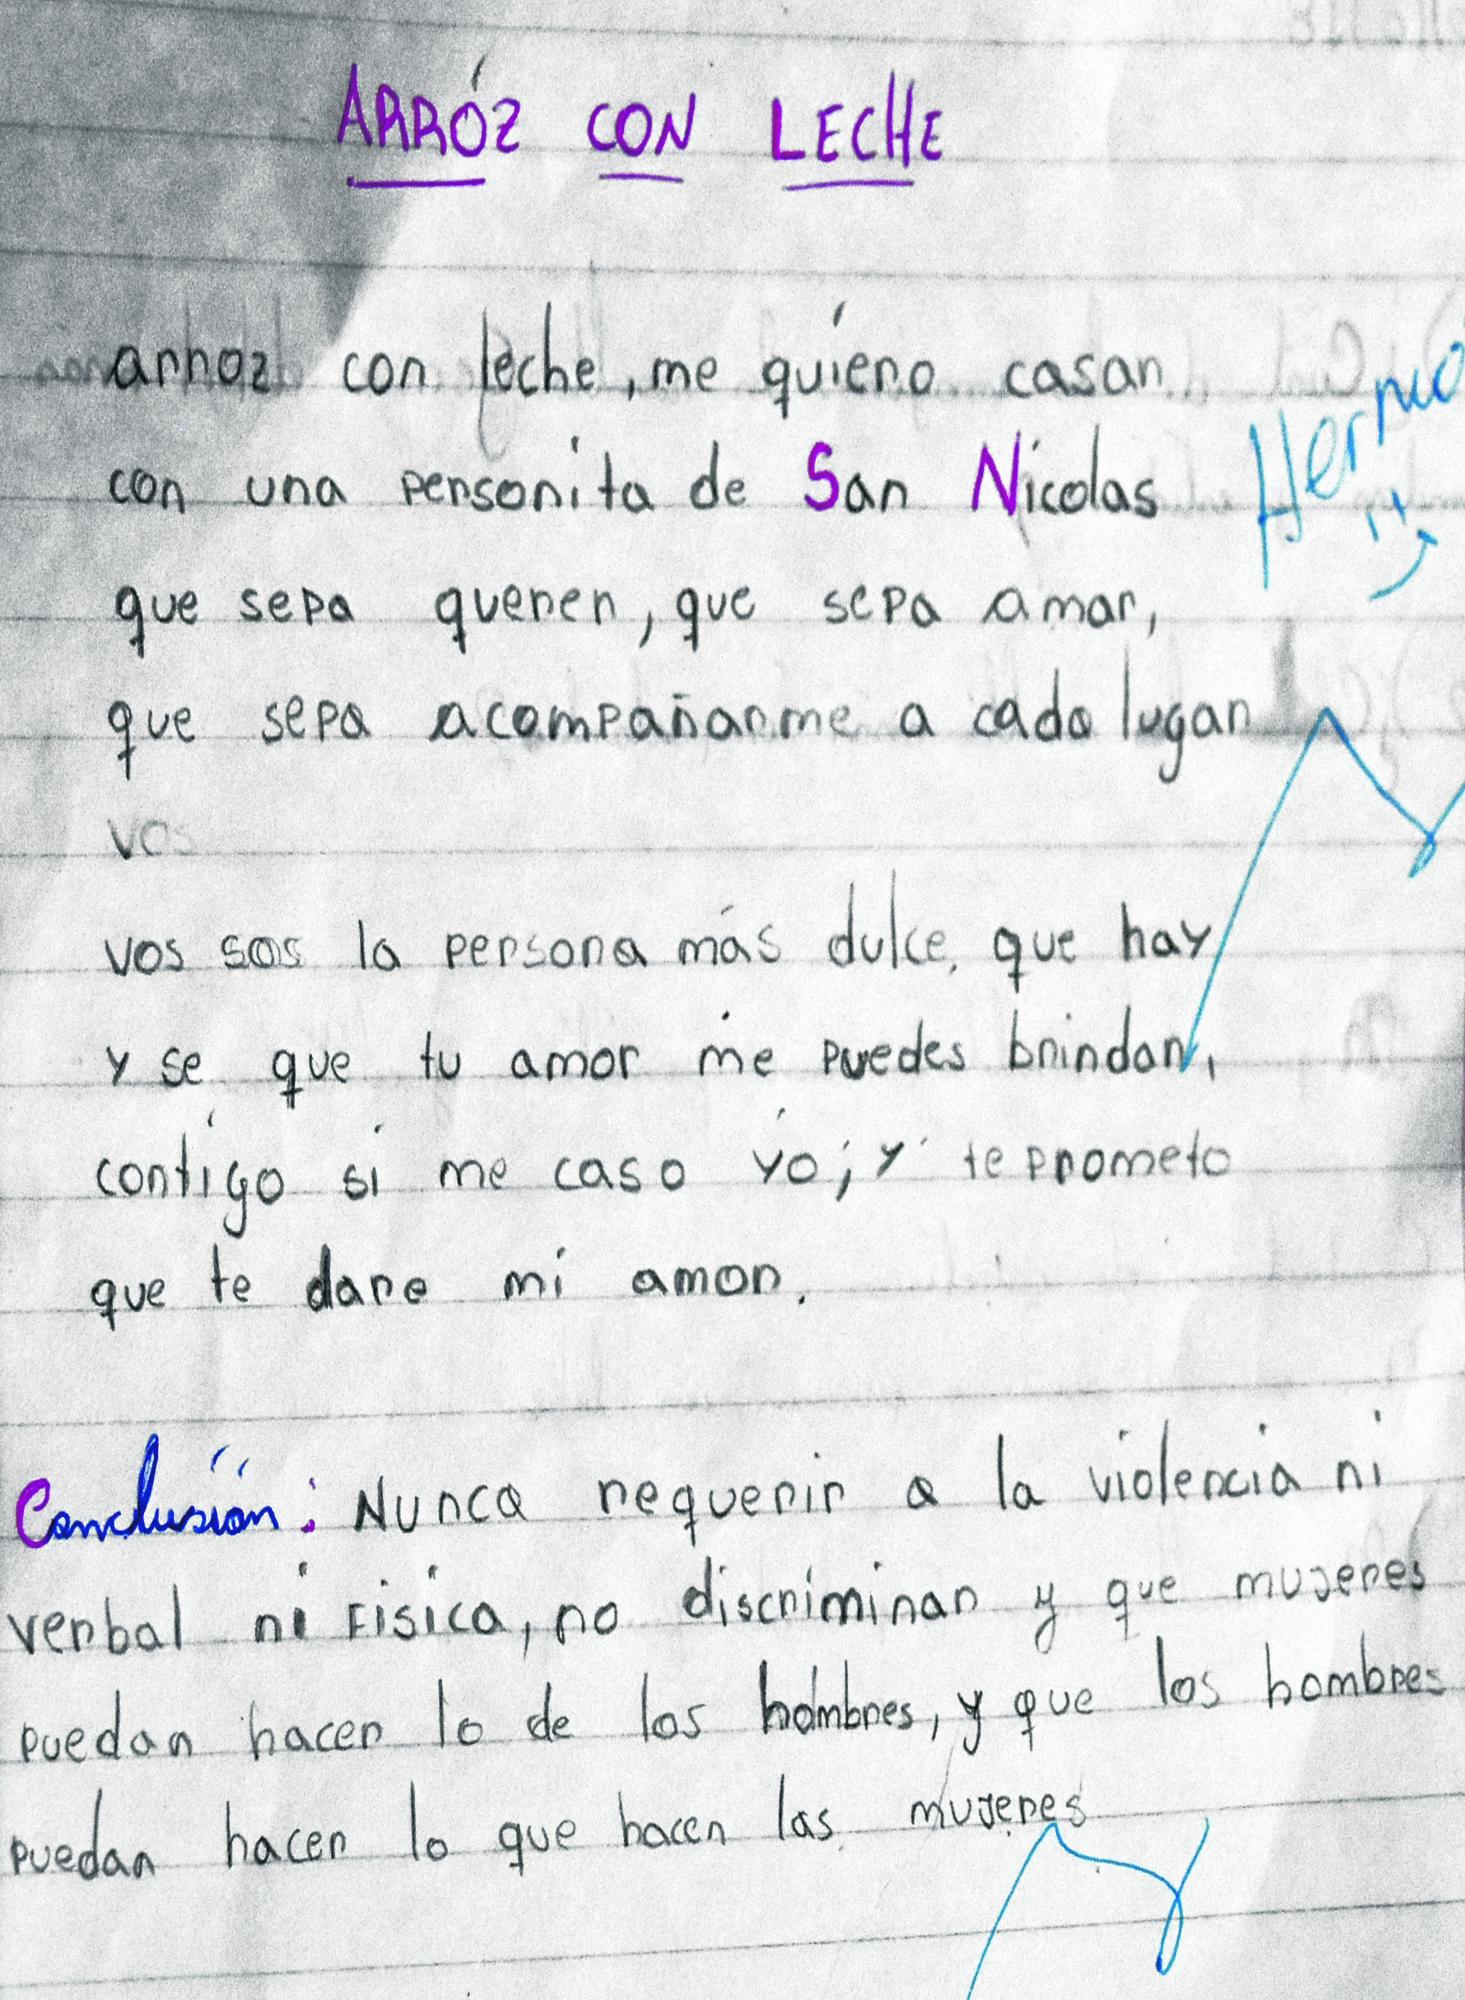 ARRÓZ CON LECHE
arroz con leche, me quiero casar
con una personita de San Nicolas
que sepa querer, que sepa amar,
que sepa acompañarme a cada lugar
vos
vos sos la persona más dulce, que hay
y se que tu amor me puedes brindar,
contigo si me caso yo; y te prometo
que te dare mi amor.
Conclusión: Nunca requerir a la violencia ni
verbal ni Fisica, no discriminar y que mujeres
puedan hacer lo de los hombres, y que los hombres
puedan hacer lo que hacen las mujeres